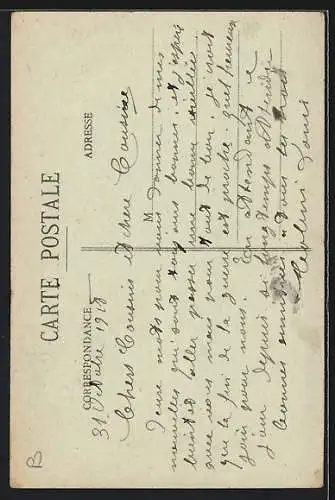 CARTE POSTALE
CORRESPONDANCE
ADRESSE
M
31 Octobre 1918
Chers Cousins et chère Cousine
Deux mots pour vous donner de mes
nouvelles qui sont toujours bonnes, et j'espère
bientôt aller passer une bonne veillée
avec vous mais pour tout de bon. Je crois
que la fin de la guerre est proche quel heureux
jour pour nous. En attendant ce
jour depuis si longtemps attendu
bonnes amitiés à tous les trois
Louis
B